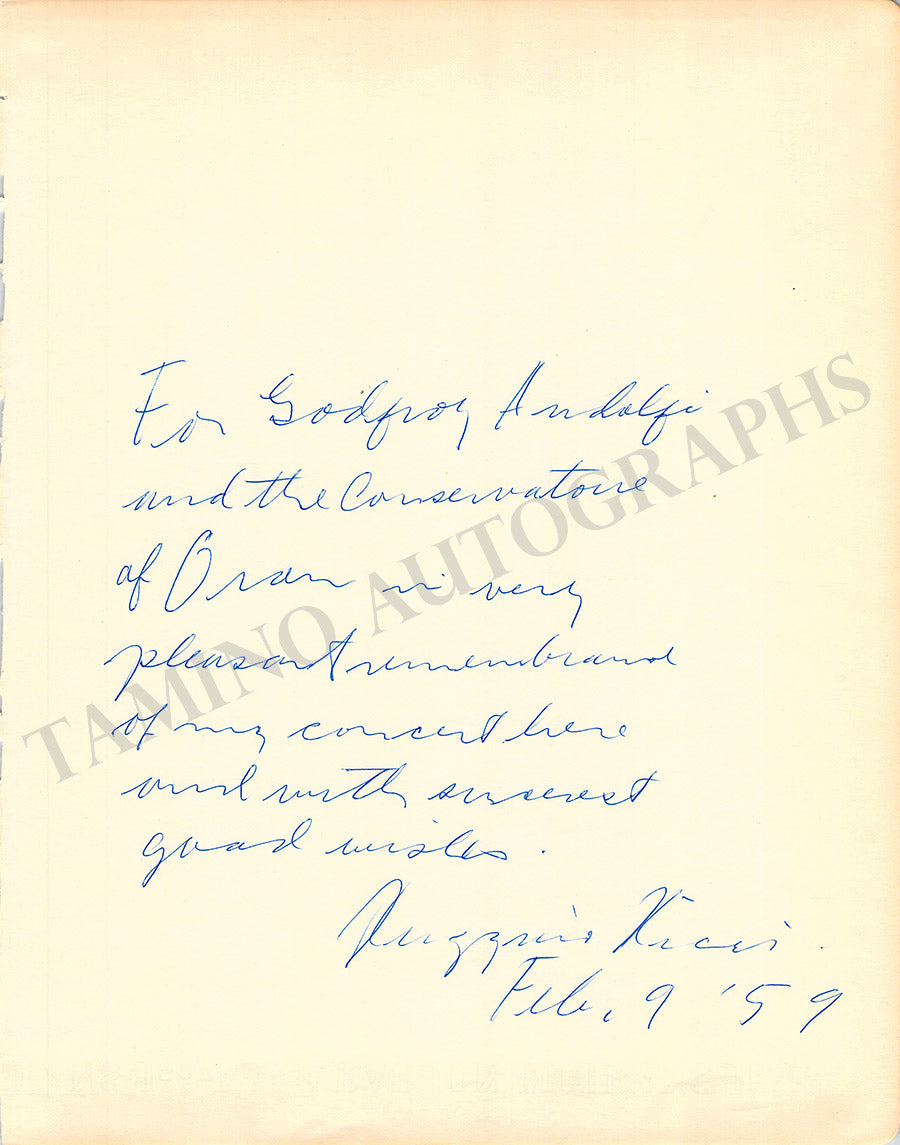 For Godfroy Andolfi
and the Conservatoire
of Oran in very
pleasant remembrance
of my concert here
and with sincerest
good wishes.
Ruggiero Ricci.
Feb. 9 '59
TAMINO AUTOGRAPHS